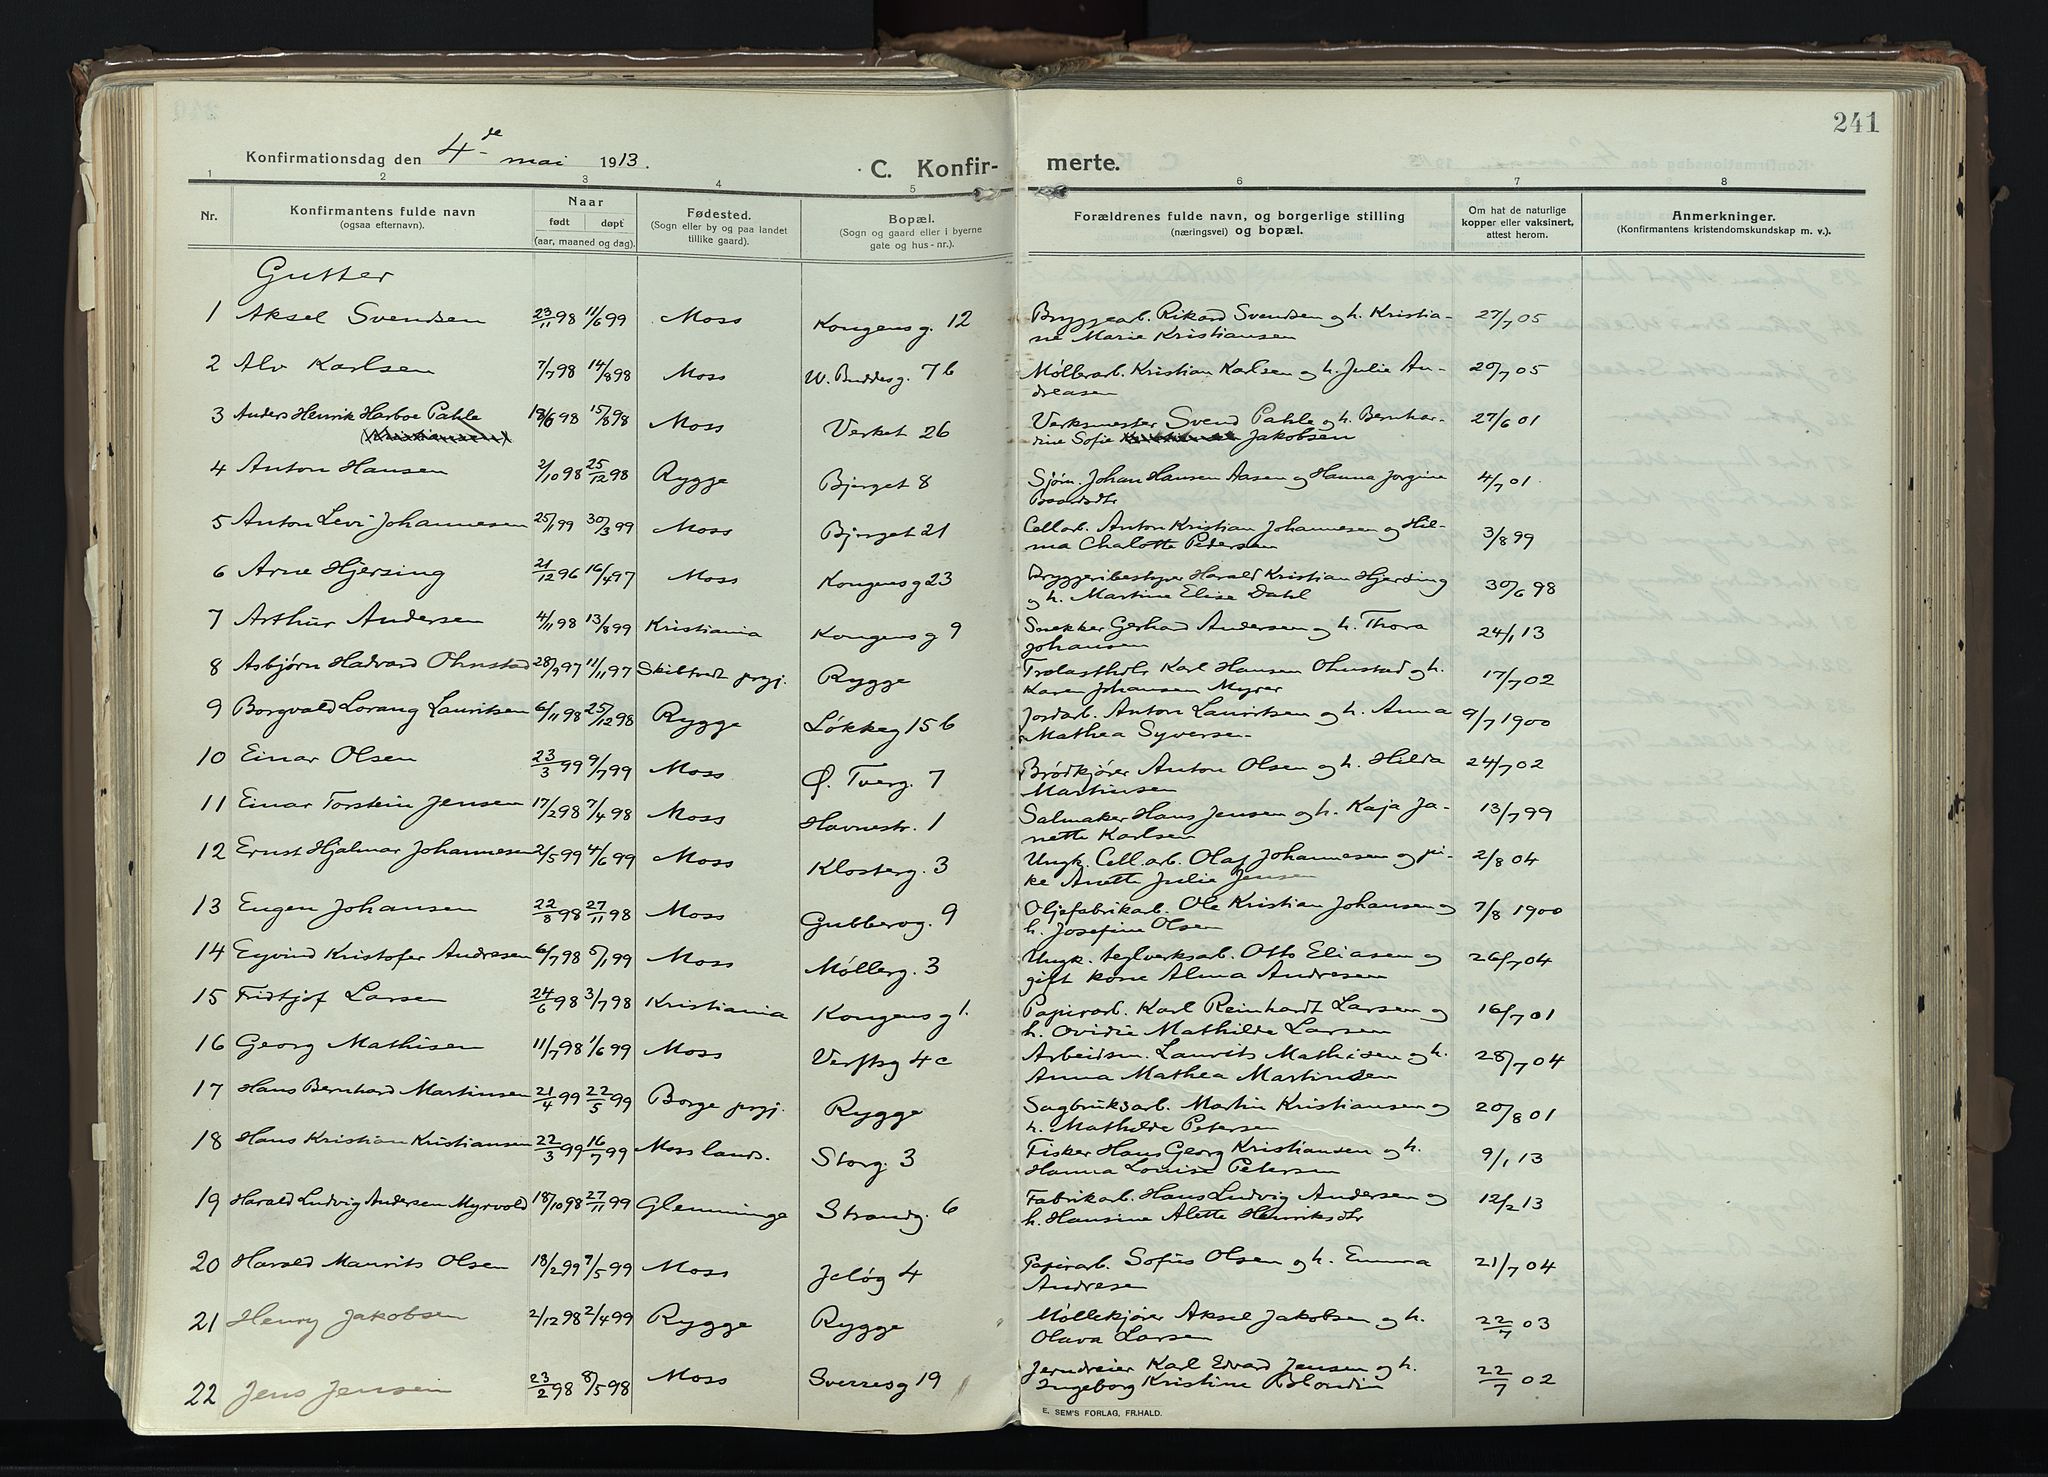 241
Konfirmationsdag den 4de mai 1913.
C. Konfir- merte.
1 2 3 4 5 6 7 8
Nr. Konfirmantens fulde navn (ogsaa efternavn). Naar født døpt (aar, maaned og dag). Fødested. (Sogn eller by og paa landet tillike gaard). Bopæl. (Sogn og gaard eller i byerne gate og hus-nr.). Forældrenes fulde navn, og borgerlige stilling (næringsvei) og bopæl. Om hat de naturlige kopper eller vaksinert, attest herom. Anmerkninger. (Konfirmantens kristendomskundskap m. v.).
Gutter
1 Aksel Svendsen 23/11 98 11/6 99 Moss Kongensg. 12 Bryggearb. Rikard Svendsen og h. Kristia- 27/7 05
ne Marie Kristiansen
2 Alv Karlsen 7/7 98 14/8 98 Moss W. Buddesg. 7b Møllerarb. Kristian Karlsen og h. Julie An- 20/7 05
dreasen
3 Anders Henrik Harboe Pahle 18/6 98 15/8 98 Moss Verket 26 Verksmester Svend Pahle og h. Bernhar- 27/6 01
dine Sofie Jakobsen
4 Anton Hansen 2/10 98 25/12 98 Rygge Bjerget 8 Sjøm. Johan Hansen Aasen og Hanna Jorgine 4/7 01.
5 Anton Levi Johannesen 25/1 99 30/3 99 Moss Bjerget 21 Cellarb. Anton Kristian Johannesen og Hil- 3/8 99
ma Charlotte Pedersen
6 Arne Hjersing 21/12 96 16/4 97 Moss Kongensg 23 Bryggeribestyrer Harald Kristian Hjersing 30/6 98
og h. Martine Elise Dahl
7 Arthur Andersen 4/11 98 13/8 99 Kristiania Kongensg 9 Snekker Gerhard Andersen og h. Thora 24/1 13
Johansen
8 Asbjørn Hadvard Ohnstad 28/9 97 11/11 97 Skibtvedt prgj. Rygge Karl Hansen Ohnstad og h. 17/7 02
Karen Johansen Myrer
9 Borgvald Lorang Lauritsen 6/11 98 25/12 98 Rygge Løkkeg 15b Jordarb. Anton Lauritsen og h. Anna 9/7 1900
Mathea Syversen
10 Einar Olsen 23/3 99 9/7 99 Moss Ø. Tverg. 7 Brødkjører Anton Olsen og h. Hilda 24/7 02
Martinsen
11 Einar Torstein Jensen 17/2 98 7/4 98 Moss Havnestr. 1 Salmaker Hans Jensen og h. Kaja Ja- 13/7 99
nette Karlsen
12 Ernst Hjalmar Johannesen 2/5 99 4/6 99 Moss Klosterg. 3 Ungk. Cell.arb. Olaf Johannesen og pi- 2/8 04
ke Anette Julie Jensen
13 Eugen Johansen 22/8 98 27/11 98 Moss Gubberog. 9 Oljefabrikarb. Ole Kristian Johansen og 7/8 1900
h. Josefine Olsen
14 Eyvind Kristofer Andresen 6/7 98 5/1 99 Moss Møllerg. 3 Ungk. teglverksarb. Otto Eliasen og 26/7 04
gift kone Alma Andresen
15 Fridtjof Larsen 24/6 98 3/7 98 Kristiania Kongensg 1. Papirarb. Karl Reinhardt Larsen og 16/7 01
h. Ovidie Mathilde Larsen
16 Georg Mathisen 11/7 98 1/6 99 Moss Verftsg 4c Arbeidsm. Laurits Mathisen og h. 28/7 04
Anna Mathea Martinsen
17 Hans Bernhard Martinsen 21/4 99 22/5 99 Borge prgj. Rygge Sagbruksarb. Martin Kristiansen og 20/8 01
h. Mathilde Petersen
18 Hans Kristian Kristiansen 22/3 99 16/7 99 Moss lands. Storg. 3 Fisker Hans Georg Kristiansen og h. 9/1 13
Hanna Louise Petersen
19 Harald Ludvig Andersen Myrvold 18/10 98 27/11 99 Glemminge Strandg. 6 Fabrikarb. Hans Ludvig Andersen og 12/2 13
h. Hansine Alette Henriksdtr
20 Harald Maurits Olsen 18/2 99 7/5 99 Moss Jeløg 4 Papirarb. Sofus Olsen og h. Emma 21/7 04
Andresen
21 Henry Jakobsen 2/12 98 2/4 99 Rygge Rygge Møllekjører Aksel Jakobsen og h. 22/7 03
Olava Larsen
22 Jens Jensen 23/2 98 8/5 98 Moss Sverresg 19 Jerndreier Karl Edvard Jensen og h. 22/7 02
Ingeborg Kristine Blondin
E. SEM'S FORLAG, FR.HALD.